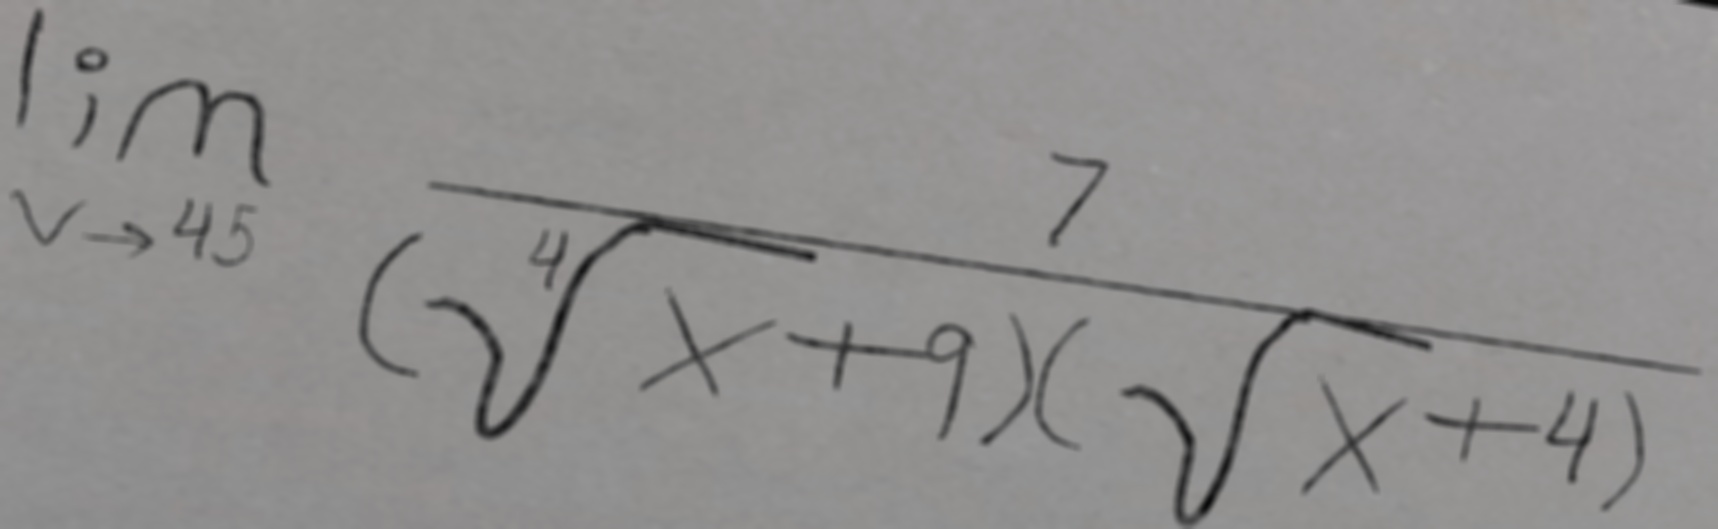 lim_{v→45} \frac{7}{(\sqrt[4]{x}+9)(\sqrt{x}+4)}